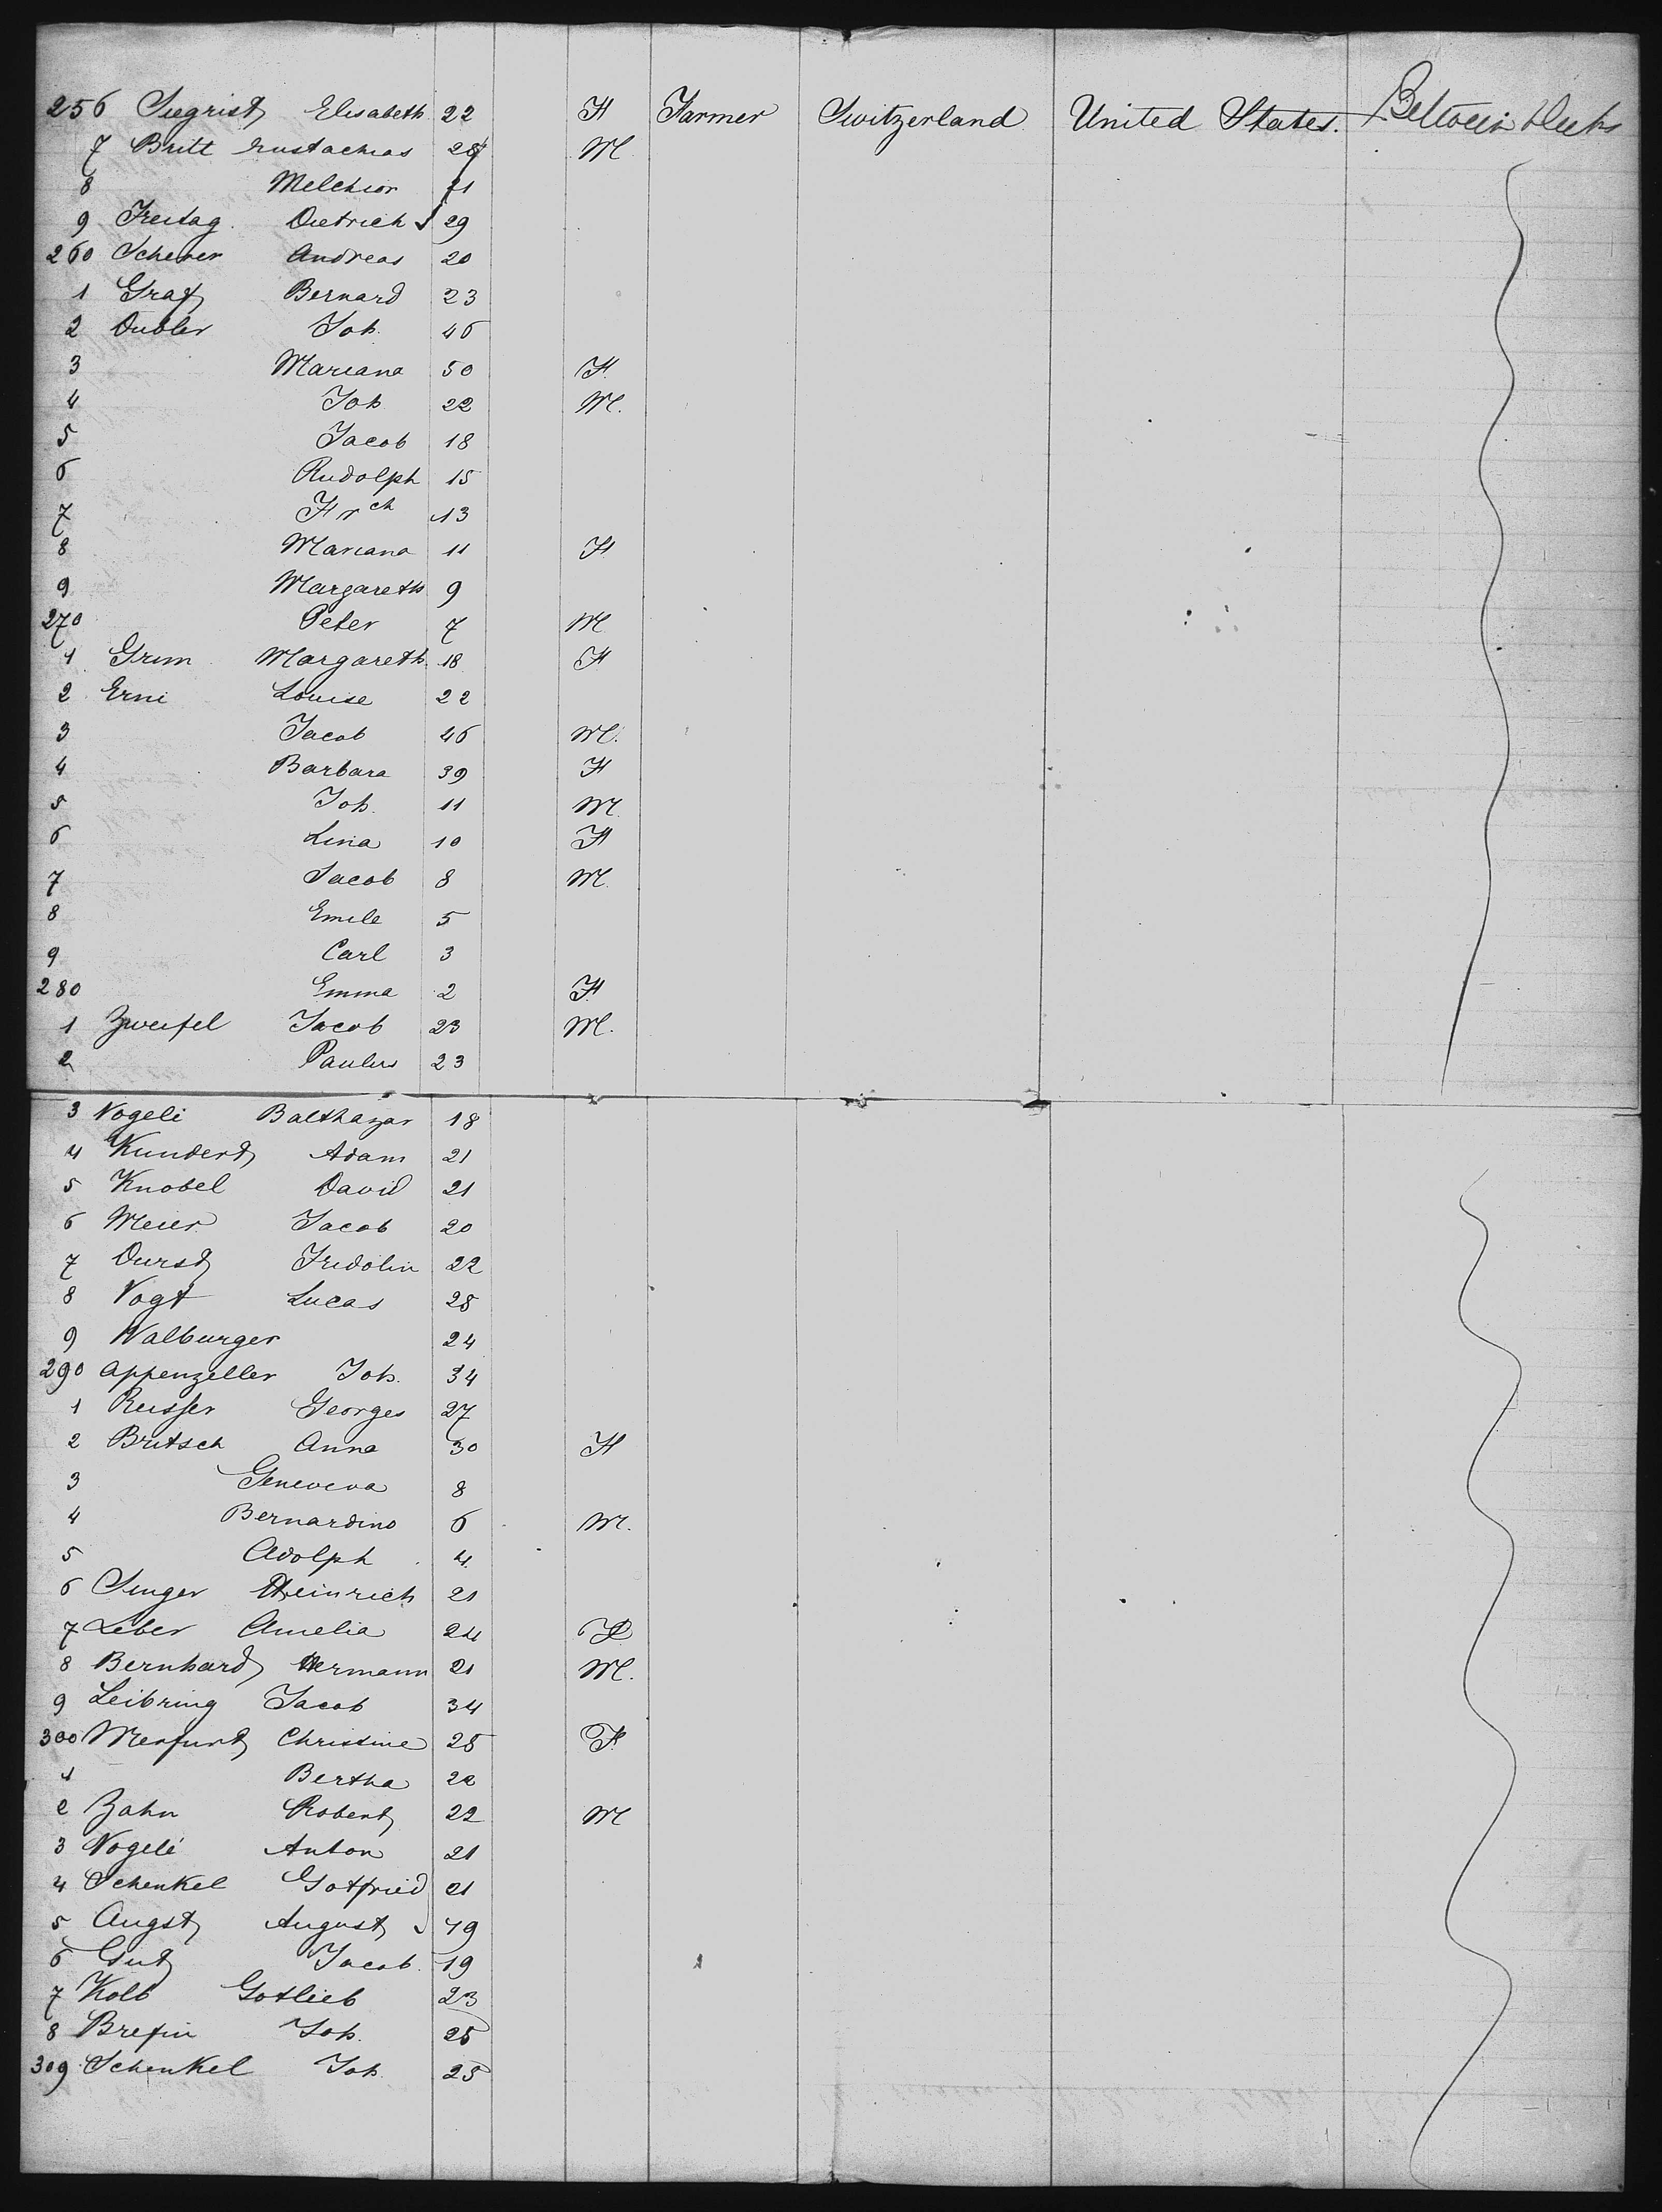 256 Siegrist Elisabeth 22 F Farmer Switzerland United States. Between Decks
7 Britt Eustachius 28 M
8 Melchior 21
9 Freitag Dietrich 29
260 Scherer Andreas 20
1 Graf Bernard 23
2 Dubler Joh. 46
3 Mariana 50 F
4 Joh 22 M.
5 Jacob 18
6 Rudolph 15
7 Frch 13
8 Mariana 11 F
9 Margareth 9
270 Peter 7 M
1 Grim Margareth 18 F
2 Erni Louise 22
3 Jacob 46 M.
4 Barbara 39 F
5 Joh. 11 M.
6 Lina 10 F
7 Jacob 8 M.
8 Emile 5
9 Carl 3
280 Emma 2 F
1 Zweifel Jacob 23 M.
2 Paulus 23
3 Vogeli Balthazar 18
4 Kundert Adam 21
5 Knobel David 21
6 Meier Jacob 20
7 Durst Fridolin 22
8 Vogt Lucas 28
9 Walburger 24
290 Appenzeller Joh. 34
1 Reisser Georges 27
2 Britsch Anna 30 F
3 Geneveva 8
4 Bernardino 6 M.
5 Adolph 4
6 Singer Heinrich 21
7 Leber Amelia 24 F
8 Bernhard Hermann 21 M.
9 Leibring Jacob 34
300 Merfurt Christine 25 F
1 Bertha 22
2 Zahn Robert 22 M
3 Vogeli Anton 21
4 Schenkel Gotfried 21
5 Augst August 49
6 Gut Jacob 19
7 Kolb Gotlieb 23
8 Brefin Joh. 25
309 Schenkel Joh 25